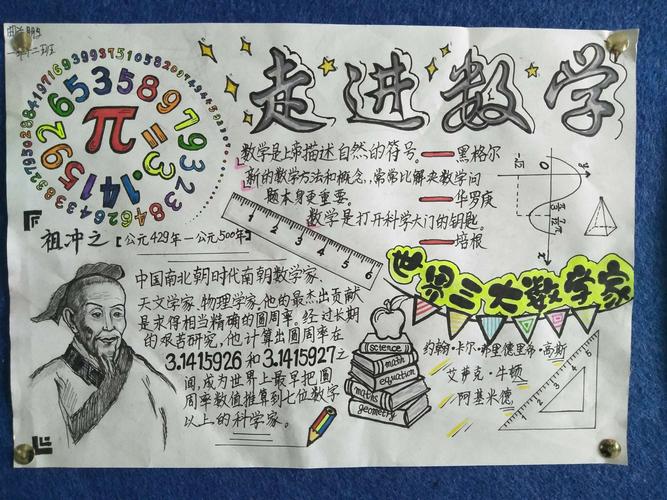 走进数学
π=3.14159265358979323846
数学是上帝描述自然的符号。——黑格尔
新的数学方法和概念,常常比解决数学问
题本身更重要。——华罗庚
数学是打开科学大门的钥匙。
——培根
祖冲之【公元429年—公元500年】
中国南北朝时代南朝数学家、
天文学家、物理学家。他的最杰出贡献
是求得相当精确的圆周率。经过长期
的艰苦研究,他计算出圆周率在
3.1415926和3.1415927之
间,成为世界上最早把圆
周率数值推算到七位数字
以上的科学家。
1 2 3 4 5 6
science
math
equation
maths
geometry
世界三大数学家
约翰·卡尔·弗里德里帝·高斯
艾萨克·牛顿
阿基米德
1 2 3 4 5